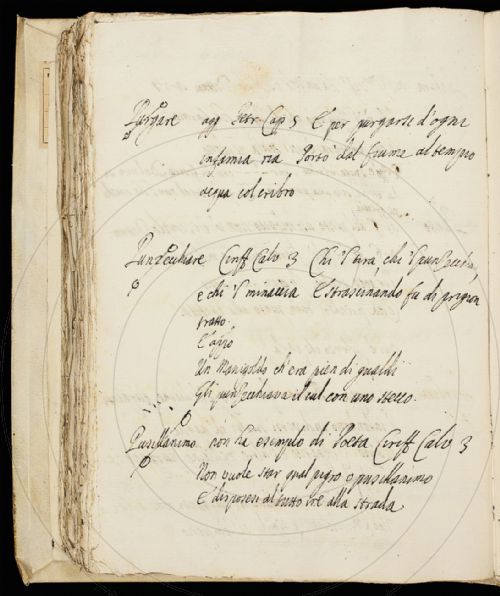 Purgare agg Petr Cap 5 E per purgarsi d'ogni
infamia ria Portò dal fiume al tempio
acqua col cribro
Punzecchiare Ciriff Calv 3 Chi 'l tira, chi 'l punzecchia,
e chi 'l minaccia E strascinando fu di prigion
tratto.
Un Manigoldo ch'era pien di
Gli punzecchiava il cul con uno stecco.
Pusillanimo non ha esemplo di Poeta Ciriff Calv 3
Non vuole star qual pigro e pusillanimo
E disposesi al tutto ire alla strada